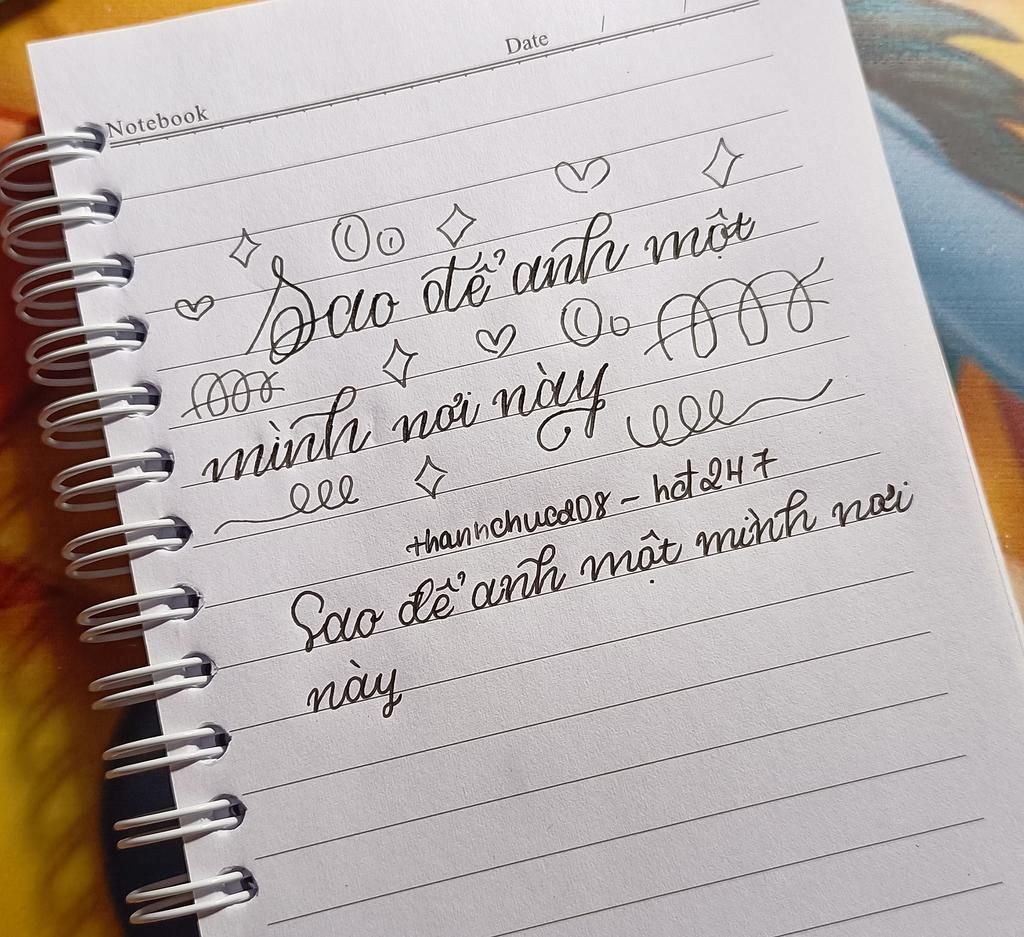 Date / /
Notebook
Sao để anh một
mình nơi này
thanhchuc208 - hct247
Sao để anh một mình nơi
này